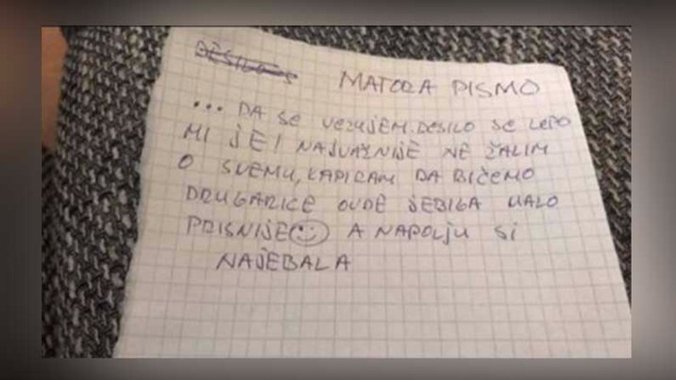 MATORA PISMO
... DA SE VEZUJEM. DESILO SE LEPO
MI JE! NAJVAŽNIJE NE ŽALIM
O SVEMU, KAPIRAM DA BIĆEMO
DRUGARICE OVDE JEBIGA MALO
PRISNIJE A NAPOLJU SI
NAJEBALA